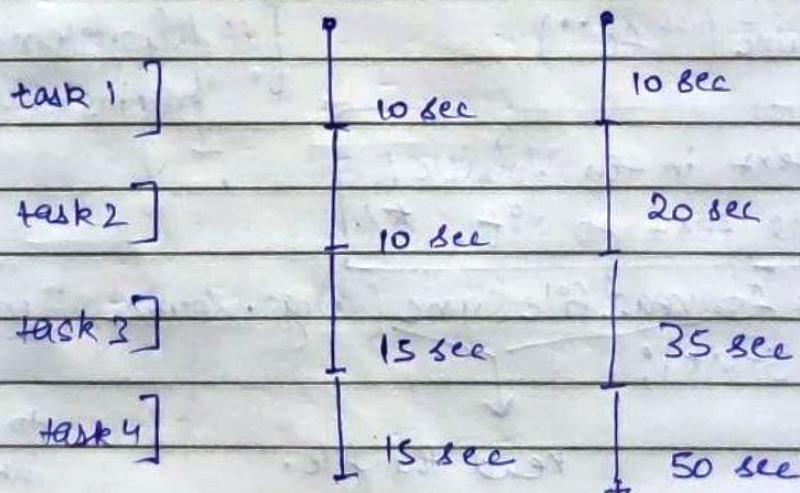 task 1 10 sec 10 sec
task 2 10 sec 20 sec
task 3 15 sec 35 sec
task 4 15 sec 50 sec